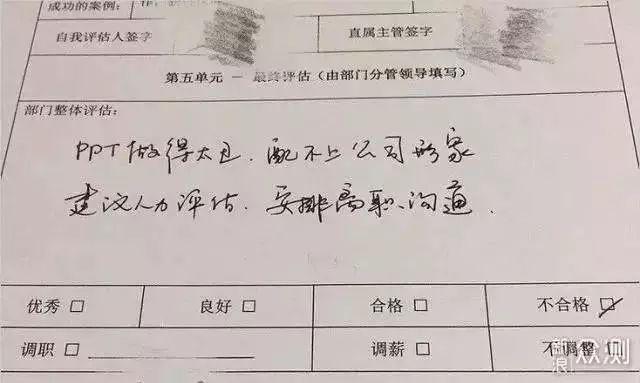 成功的案例：
自我评估人签字
直属主管签字
第五单元 — 最终评估（由部门分管领导填写）
部门整体评估：
PPT做得太丑，配不上公司形象
建议人力评估，安排离职沟通。
优秀 □ 良好 □ 合格 □ 不合格 ☑
调职 □ 调薪 □ 不调整 □
新浪众测